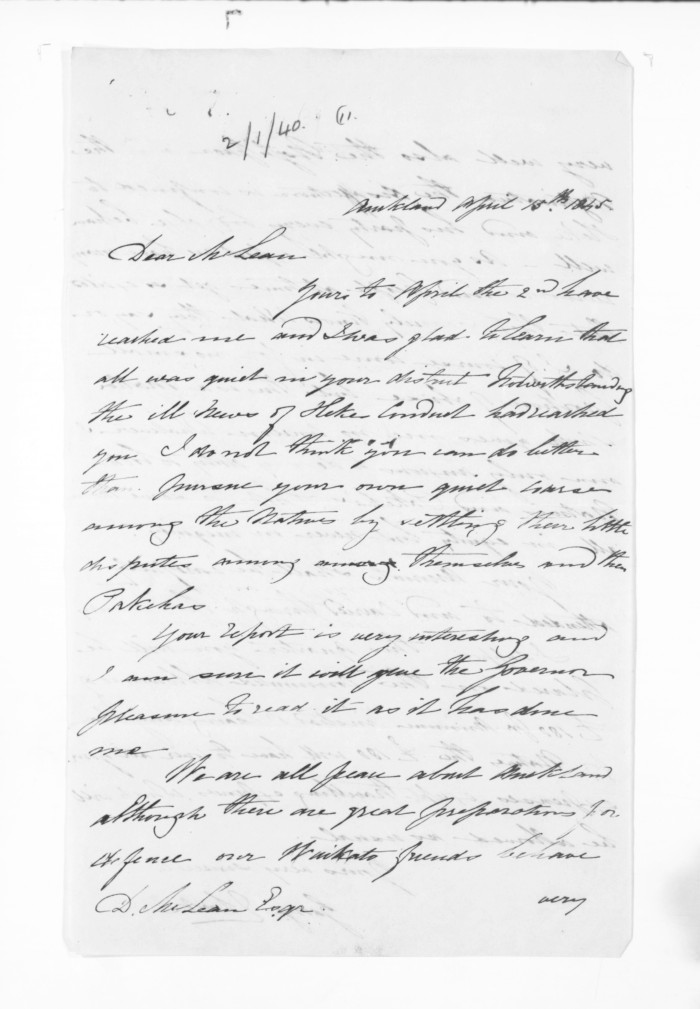 2/1/40. (1).
Auckland April 15th. 1845
Dear McLean
Yours to April the 2nd have
reached me and I was glad to learn that
all was quiet in your district Notwithstanding
the ill News of Heke Conduct had reached
you. I do not think you can do better
than pursue your own quiet course
among the Natives by settling their little
disputes among among themselves and the
Pakehas
Your report is very interesting and
I am sure it will give the Governor
pleasure to read it as it has done
me
We are all peace about Auckland
although there are great preparations for
defence our Waikato friends behave
D. McLean Esqr.
very